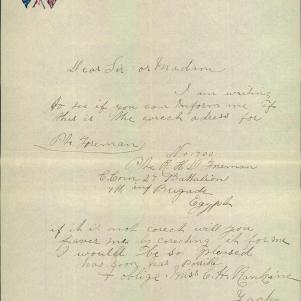 Dear Sir or Madam
I am writing
to see if you can inform me if
this is the corech adress for
Pte Foreman
No 1700
Pte R. H. D. Foreman
C Com 27 Battalion
7th inf Brigade
Egypt
if it is not corech will you
favor me by corecting it for me
I would be so pleased
has soon has Possible
& oblige Miss E. H. Rankine